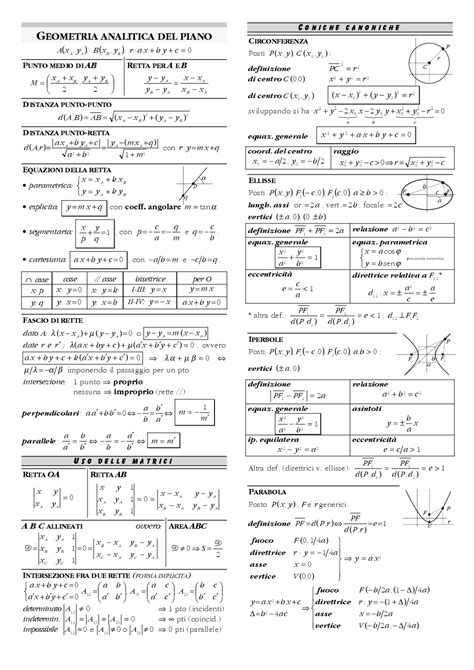 GEOMETRIA ANALITICA DEL PIANO
A(x_A, y_A) B(x_B, y_B) r: ax+by+c=0
PUNTO MEDIO DI AB
M = ( (x_A+x_B)/2 , (y_A+y_B)/2 )
RETTA PER A E B
(y−y_A)/(y_B−y_A) = (x−x_A)/(x_B−x_A)
DISTANZA PUNTO-PUNTO
d(A,B) = AB = √((x_A−x_B)²+(y_A−y_B)²)
DISTANZA PUNTO-RETTA
d(A,r) = |ax_A+by_A+c|/√(a²+b²) = |y_A−(mx_A+q)|/√(1+m²) con r: y=mx+q
EQUAZIONI DELLA RETTA
• parametrica: { x=x_A+kx_R
y=y_A+ky_R
• esplicita: y=mx+q con coeff. angolare m=tanα
• segmentaria: x/p + y/q = 1, con p=−c/a = −q/m e q=−c/b
• cartesiana ax+by+c=0 con −a/b=m e −c/b=q.
∩ asse asse // asse bisettrice per O
x: p x: y=0 x: y=k I-III: y=x y=mx
y: q y: x=0 y: x=h II-IV: y=−x ax+by=0
FASCIO DI RETTE
dato A: λ(x−x_A)+μ(y−y_A)=0 o y−y_A=m(x−x_A)
date r e r': λ(ax+by+c)+μ(a'x+b'y+c')=0, ovvero
ax+by+c+k(a'x+b'y+c')=0 ⇒ λα+μβ=0 ⇔
μ/λ=−α/β imponendo il passaggio per un pto
intersezione: 1 punto ⇒ proprio
nessuna ⇒ improprio (rette //)
perpendicolari: aa'+bb'=0 ⇔ −a/b = b'/a' ⇔ m=−1/m'
parallele: a/a' = b/b' ⇔ −a/b = −a'/b' ⇔ m=m'
USO DELLE MATRICI
RETTA OA
|x y; x_A y_A| = 0
RETTA AB
|x y 1; x_A y_A 1; x_B y_B 1| = 0 ⇔ |x−x_A y−y_A; x_B−x_A y_B−y_A| = 0
A B C ALLINEATI ovvero: AREA ABC
𝒟=|x_A y_A 1; x_B y_B 1; x_C y_C 1|=0
INTERSEZIONE FRA DUE RETTE (FORMA IMPLICITA)
{ ax+by+c=0
a'x+b'y+c'=0
determinato ≠0 ⇒ 1 pto (incidenti)
indetermin. =0 ⇒ ∞ pti (coincid.)
impossibile =0 e ≠0 ⇒ 0 pti (parallele)
CONICHE CANONICHE
CIRCONFERENZA
Posti P(x,y), C(x_C,y_C):
definizione PC² = r²
di centro C(0,0) x²+y²=r²
di centro C(x_C,y_C) (x−x_C)²+(y−y_C)²=r²
sviluppando si ha x²+y²−2x_C x−2y_C y+x_C²+y_C²−r²=0
equaz. generale x²+y²+ax+by+c=0
coord. del centro raggio
x_C=−a/2, y_C=−b/2 x_C²+y_C²−c>0 ⇒ r=√(x_C²+y_C²−c)
ELLISSE
Posti P(x,y) F₁(−c,0) F₂(c,0) a≥b>0:
lungh. assi or.=2a, vert.=2b, focale=2c
vertici (±a,0) (0,±b)
definizione PF₁+PF₂=2a relazione a²−b²=c²
equaz. generale equaz. parametrica
x²/a² + y²/b² = 1
{ x=acosφ
y=bsenφ
eccentricità direttrice relativa a F₁,₂*
e=c/a<1 d₁,₂: x=±a²/c=±a/e
* altra def.: PF₁/d(P,d₁) = PF₂/d(P,d₂) = e<1; d₁,₂⊥F₁F₂
IPERBOLE
Posti P(x,y) F₁(−c,0) F₂(c,0) a,b>0:
vertici (±a,0)
definizione relazione
|PF₁−PF₂|=2a a²+b²=c²
equaz. generale asintoti
x²/a² − y²/b² = 1 y=±(b/a)x
ip. equilatera eccentricità
x²−y²=a² e=c/a>1
Altra def. (direttrici v. ellisse): PF₁/d(P,d₁) = PF₂/d(P,d₂) = e>1
PARABOLA
Posto P(x,y), F e r generici:
definizione PF=d(P,r) ⇔ PF/d(P,r)=e=1
fuoco F(0,1/4a)
direttrice r: y=−1/4a
asse x=0
vertice V(0,0)
⇒ y=ax²
y=ax²+bx+c
Δ=b²−4ac
⇒
fuoco F(−b/2a,(1−Δ)/4a)
direttrice r: y=−(1+Δ)/4a
asse x=−b/2a
vertice V(−b/2a,−Δ/4a)